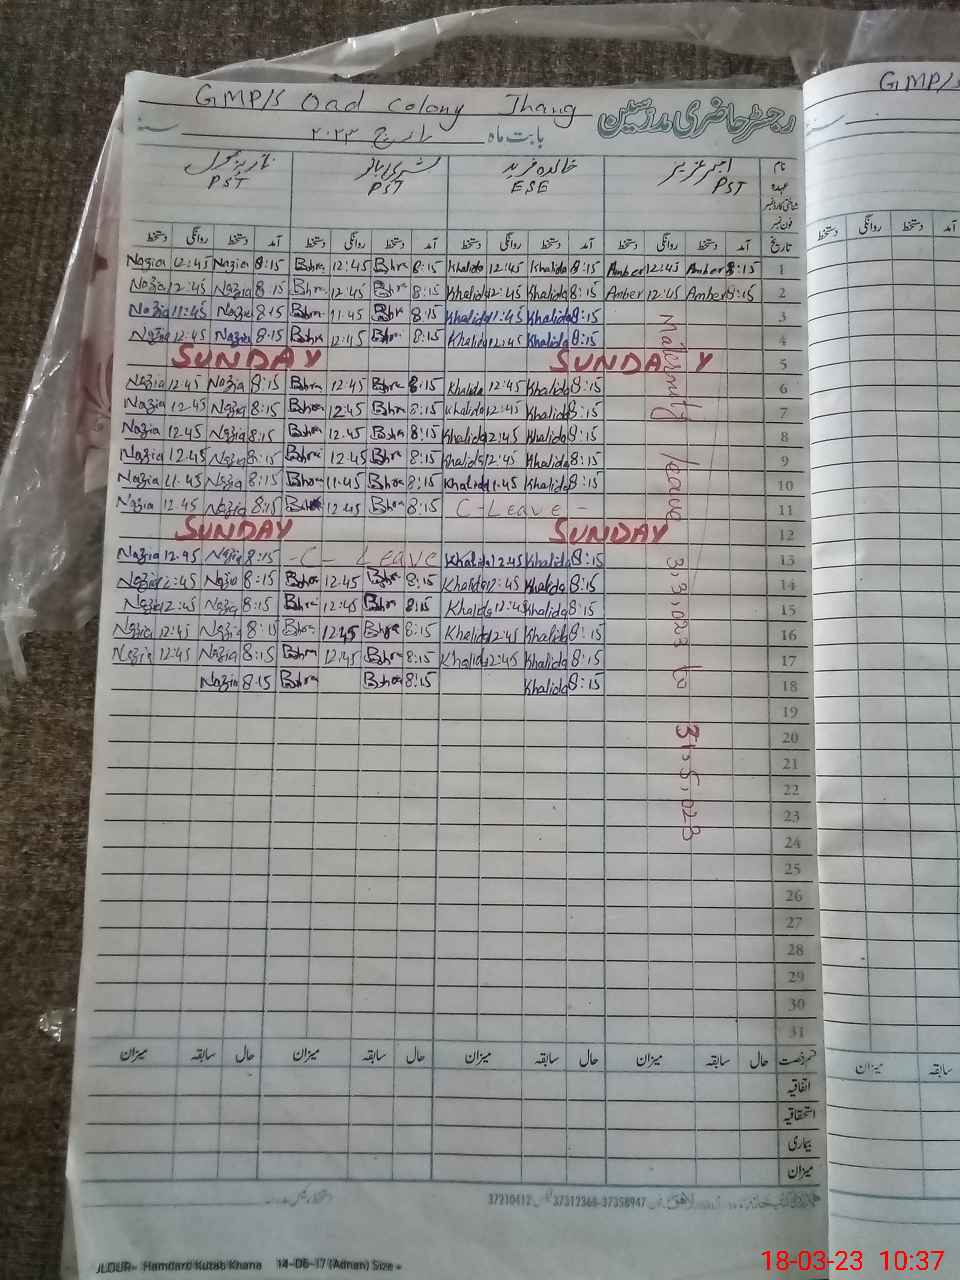 GMP/S Oad Colony Jhang
GMP/S
رجسٹر حاضری مدرسین
بابت ماہ مارچ ۲۰۲۳ سنہ
نام عنبر عزیز خالدہ فرید بشری بانو نازیہ بتول
عہدہ PST ESE PST PST
شناختی کارڈ نمبر
فون نمبر
تاریخ آمد دستخط روانگی دستخط آمد دستخط روانگی دستخط آمد دستخط روانگی دستخط آمد دستخط روانگی دستخط
Nazia 12:45 Nazia 8:15 Bshra 12:45 Bshra 8:15 Khalida 12:45 Khalida 8:15 Amber 12:45 Amber 8:15 1
Nazia 12:45 Nazia 8:15 Bshra 12:45 Bshra 8:15 Khalida 12:45 Khalida 8:15 Amber 12:45 Amber 8:15 2
Nazia 11:45 Nazia 8:15 Bshra 11:45 Bshra 8:15 Khalida 11:45 Khalida 8:15 3
Nazia 12:45 Nazia 8:15 Bshra 12:45 Bshra 8:15 Khalida 12:45 Khalida 8:15 4
SUNDAY SUNDAY 5
Nazia 12:45 Nazia 8:15 Bshra 12:45 Bshra 8:15 Khalida 12:45 Khalida 8:15 6
Nazia 12:45 Nazia 8:15 Bshra 12:45 Bshra 8:15 Khalida 12:45 Khalida 8:15 7
Nazia 12:45 Nazia 8:15 Bshra 12:45 Bshra 8:15 Khalida 12:45 Khalida 8:15 8
Nazia 12:45 Nazia 8:15 Bshra 12:45 Bshra 8:15 Khalida 12:45 Khalida 8:15 9
Nazia 11:45 Nazia 8:15 Bshra 11:45 Bshra 8:15 Khalida 11:45 Khalida 8:15 10
Nazia 12:45 Nazia 8:15 Bshra 12:45 Bshra 8:15 C-Leave - 11
SUNDAY SUNDAY 12
Nazia 12:45 Nazia 8:15 -C- Leave Khalida 12:45 Khalida 8:15 13
Nazia 12:45 Nazia 8:15 Bshra 12:45 Bshra 8:15 Khalida 12:45 Khalida 8:15 14
Nazia 12:45 Nazia 8:15 Bshra 12:45 Bshra 8:15 Khalida 12:45 Khalida 8:15 15
Nazia 12:45 Nazia 8:15 Bshra 12:45 Bshra 8:15 Khalida 12:45 Khalida 8:15 16
Nazia 12:45 Nazia 8:15 Bshra 12:45 Bshra 8:15 Khalida 12:45 Khalida 8:15 17
Nazia 8:15 Bshra Bshra 8:15 Khalida 8:15 18
Maternity leave 3.3.023 to 31.5.023
19
20
21
22
23
24
25
26
27
28
29
30
31
قسم رخصت حال سابقہ میزان حال سابقہ میزان حال سابقہ میزان حال سابقہ میزان
اتفاقیہ
استحقاقیہ
بیماری
میزان
روانگی دستخط آمد دستخط
سابقہ میزان
37210412 37312368-37358947
Hamdard Kutab Khana 14-06-17 (Adnan) Size =
18-03-23 10:37